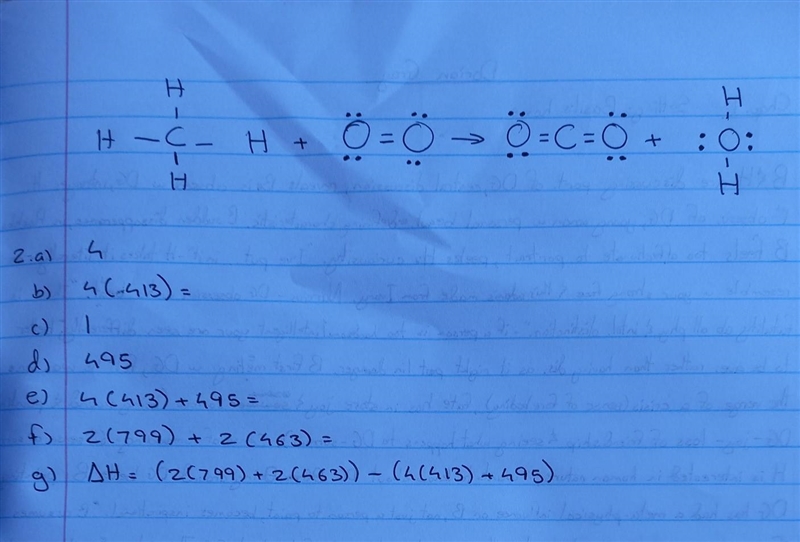 H
H - C - H + O = O → O = C = O + : O :
H H
H
2.a) 4
b) 4(-413) =
c) 1
d) 495
e) 4(413) + 495 =
f) 2(799) + 2(463) =
g) ΔH = (2(799) + 2(463)) - (4(413) + 495)